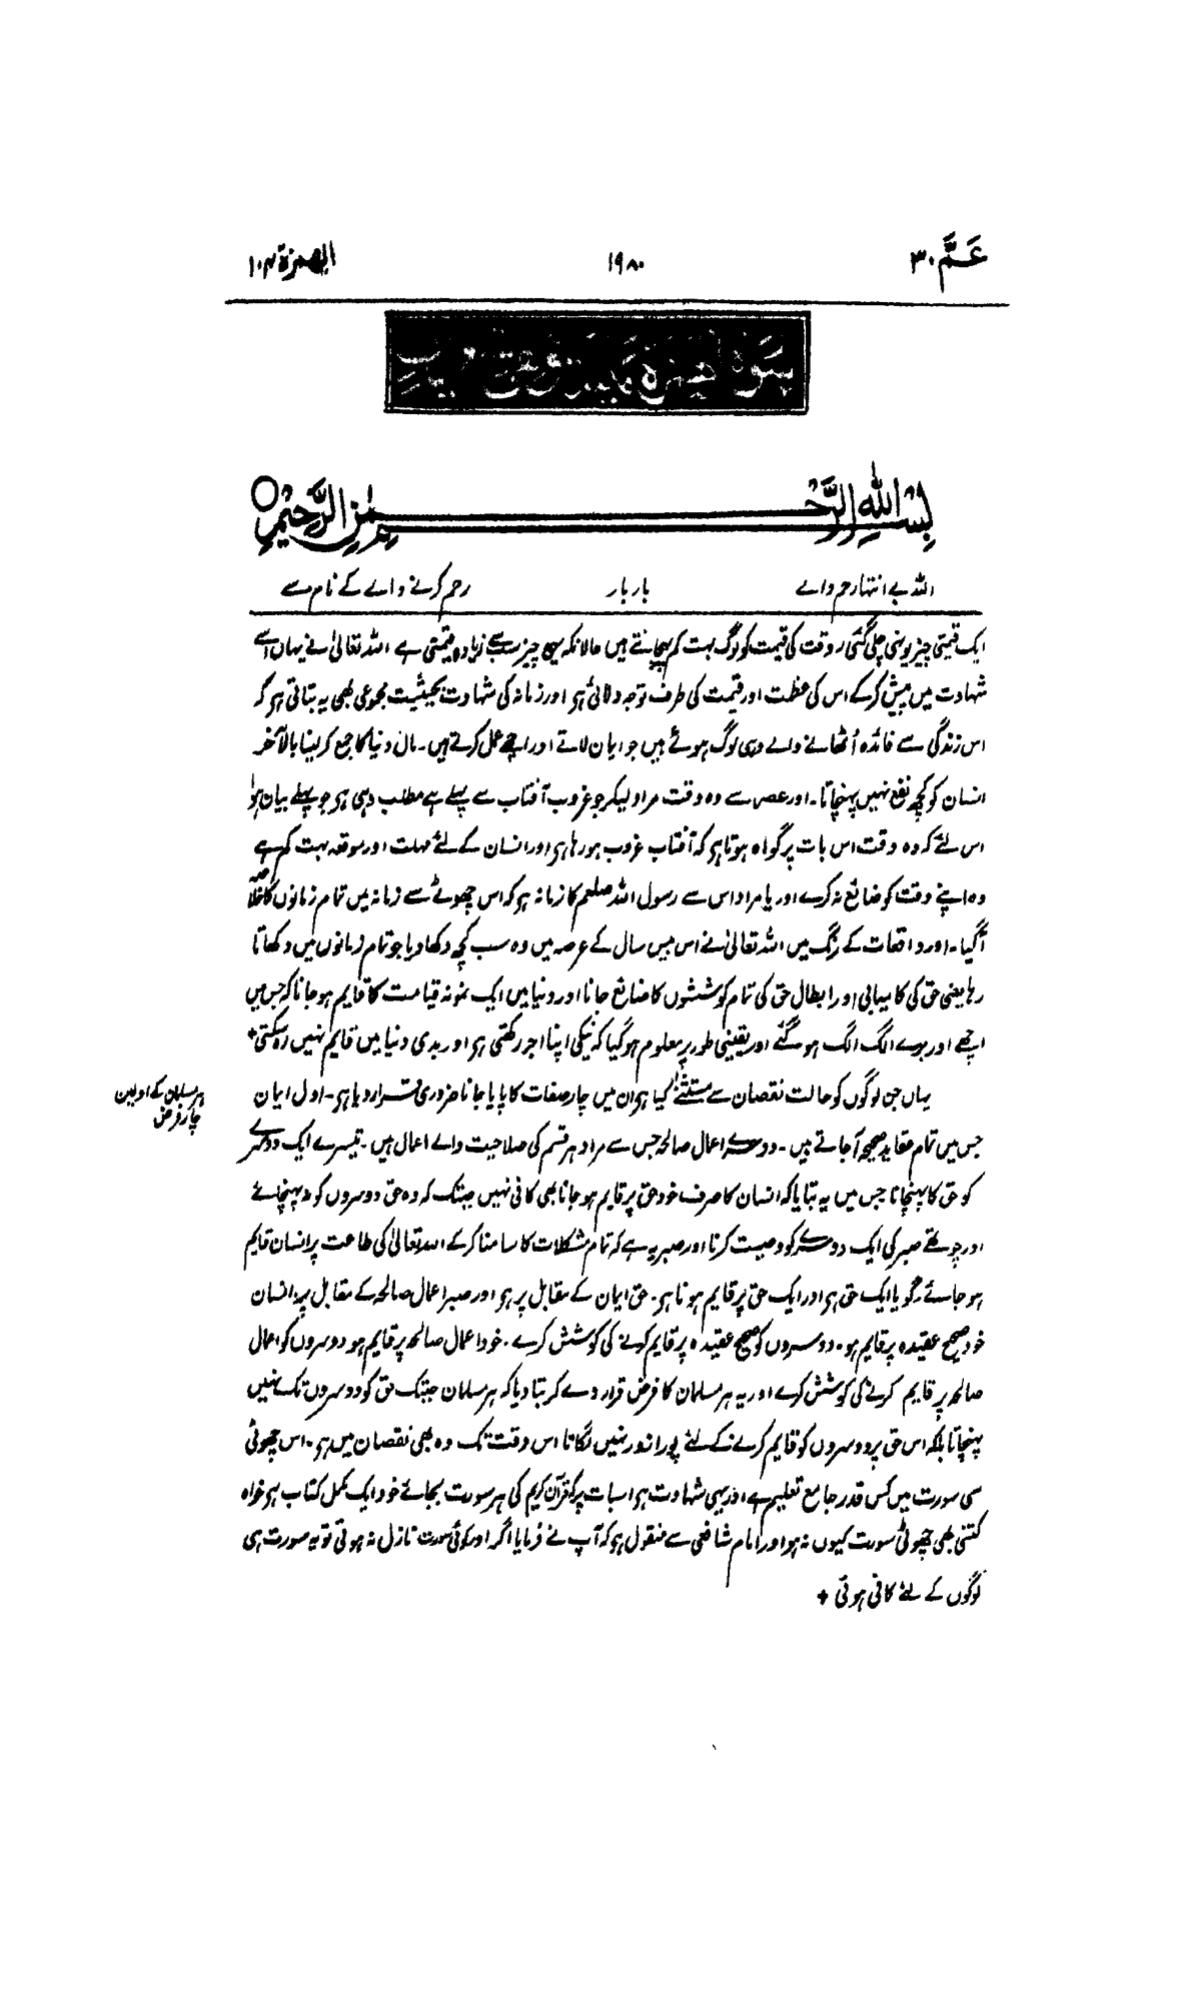 عَمَّ ۳۰
۱۹۸۰
الھمزۃ ۱۰۴
بِسْمِ اللّٰهِ الرَّحْمٰنِ الرَّحِيْمِ
اللہ بے انتہا رحم والے بار بار رحم کرنے والے کے نام سے
ایک قیمتی چیز یونہی چلی گئی۔ وقت کی قیمت کو لوگ بہت کم پہچانتے ہیں حالانکہ یہی چیز سب سے زیادہ قیمتی ہے اللہ تعالیٰ نے یہاں اسے
شہادت میں پیش کرکے اس کی عظمت اور قیمت کی طرف توجہ دلائی ہو اور زمانہ کی شہادت بحیثیت مجموعی بھی یہ بتاتی ہو کہ
اس زندگی سے فائدہ اُٹھانے والے وہی لوگ ہوئے ہیں جو ایمان لاتے اور اچھے عمل کرتے ہیں۔ مال دنیا کا جمع کرلینا بالآخر
انسان کو کچھ نفع نہیں پہنچاتا۔ اور عصر سے وہ وقت مراد لیکر جو غروب آفتاب سے پہلے ہے مطلب وہی ہو جو پہلے بیان ہوا
اس لئے کہ وہ وقت اس بات پر گواہ ہوتا ہو کہ آفتاب غروب ہو رہا ہو اور انسان کے لئے مہلت اور موقعہ بہت کم ہے
وہ اپنے وقت کو ضائع نہ کرے اور یا مراد اس سے رسول اللہ صلعم کا زمانہ ہو کہ اس چھوٹے سے زمانہ میں تمام زمانوں کا خلاصہ
آگیا۔ اور واقعات کے رنگ میں اللہ تعالیٰ نے اس بیس سال کے عرصہ میں وہ سب کچھ دکھا دیا جو تمام زمانوں میں دکھاتا
رہا یعنی حق کی کامیابی اور ابطال حق کی تمام کوششوں کا ضائع جانا اور دنیا میں ایک نمونہ قیامت کا قایم ہو جانا کہ جس میں
اچھے اور برے الگ الگ ہو گئے اور یقینی طور پر معلوم ہوگیا کہ نیکی اپنا اجر رکھتی ہو اور بدی دنیا میں قایم نہیں رہ سکتی +
ہر مسلمان کے اولین
چار فرض
یہاں جن لوگوں کو حالت نقصان سے مستثنےٰ کیا ہو ان میں چار صفات کا پایا جانا ضروری قرار دیا ہو۔ اول ایمان
جس میں تمام عقاید صحیحہ آجاتے ہیں۔ دوسرے اعمال صالحہ جس سے مراد ہر قسم کی صلاحیت والے اعمال ہیں۔ تیسرے ایک دوسرے
کو حق کا پہنچانا جس میں یہ بتایا کہ انسان کا صرف خود حق پر قایم ہو جانا بھی کافی نہیں جبتک کہ وہ حق دوسروں کو نہ پہنچائے
اور چوتھے صبر کی ایک دوسرے کو وصیت کرنا اور صبر یہ ہے کہ تمام مشکلات کا سامنا کرکے اللہ تعالیٰ کی طاعت پر انسان قایم
ہو جائے۔ گویا ایک حق ہو اور ایک حق پر قایم ہونا ہو۔ حق ایمان کے مقابل پر ہو اور صبر اعمال صالحہ کے مقابل پر۔ انسان
خود صحیح عقیدہ پر قایم ہو۔ دوسروں کو صحیح عقیدہ پر قایم کرنے کی کوشش کرے۔ خود اعمال صالحہ پر قایم ہو دوسروں کو اعمال
صالحہ پر قایم کرنے کی کوشش کرے اور یہ ہر مسلمان کا فرض قرار دے کر بتا دیا کہ ہر مسلمان جبتک حق کو دوسروں تک نہیں
پہنچاتا بلکہ اس حق پر دوسروں کو قایم کرنے کے لئے پورا زور نہیں لگاتا اس وقت تک وہ بھی نقصان میں ہو۔ اس چھوٹی
سی سورت میں کس قدر جامع تعلیم ہے اور یہی شہادت ہو اس بات پر کہ قرآن کریم کی ہر سورت بجائے خود ایک مکمل کتاب ہو خواہ
کتنی بھی چھوٹی سورت کیوں نہ ہو اور امام شافعی سے منقول ہو کہ آپ نے فرمایا اگر اور کوئی سورت نازل نہ ہوتی تو یہ سورت ہی
لوگوں کے لئے کافی ہوتی +